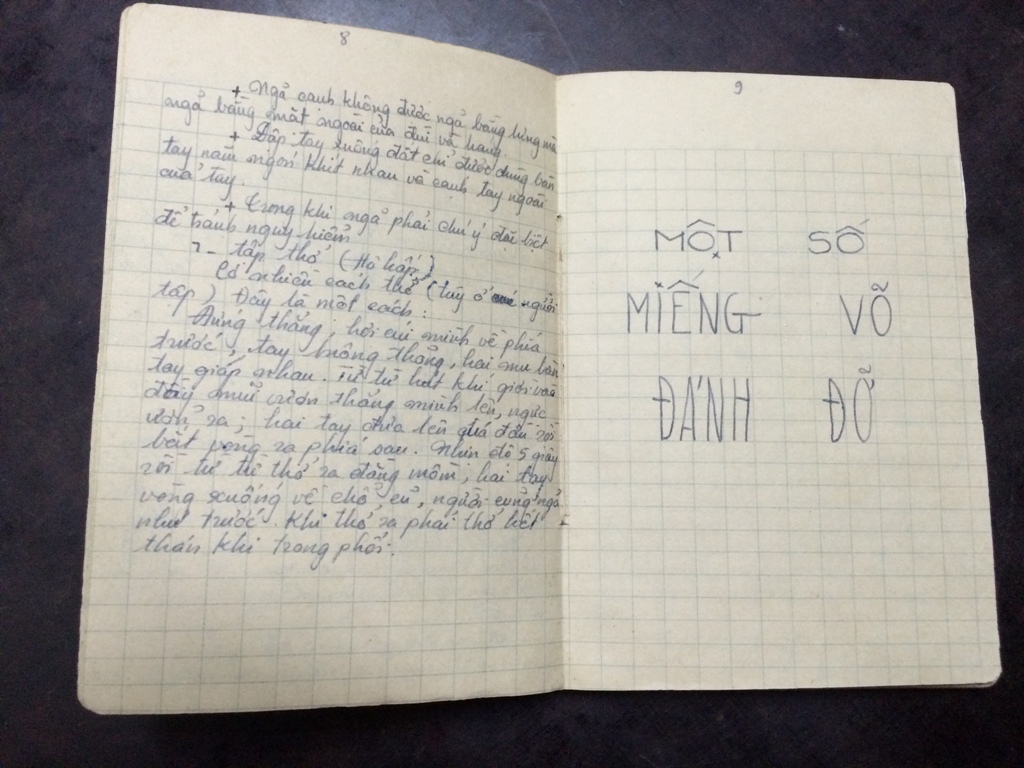 8
+ Ngả cạnh không được ngả bằng lưng mà
ngả bằng mặt ngoài của đùi và hang.
+ Đập tay xuống đất chỉ được dùng bàn
tay năm ngón khít nhau và cạnh tay ngoài
của tay.
+ Trong khi ngả phải chú ý đặc biệt
để tránh nguy hiểm
7- tập thở (Hô hấp)
Có nhiều cách thở (tùy ở người
tập) Đây là một cách:
Đứng thẳng, hơi cúi mình về phía
trước, tay buông thỏng, hai mu bàn
tay giáp nhau. Từ từ hút khí giời vào
đầy mũi vươn thẳng mình lên, ngực
ưỡn ra; hai tay đưa lên quá đầu rồi
bắt vòng ra phía sau. Nhịn độ 5 giây
rồi từ từ thở ra đằng mồm; hai tay
vòng xuống về chỗ cũ, người cũng ngả
như trước. Khi thở ra phải thở hết
thán khí trong phổi.
9
MỘT SỐ
MIẾNG VÕ
ĐÁNH ĐỖ